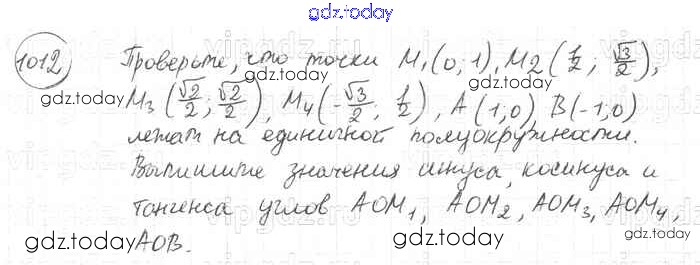 gdz.today
1012
Проверьте, что точки M₁(0; 1), M2(1/2; √3/2),
gdz.today
M₃(√2/2; √2/2), M₄(-√3/2; 1/2), A(1;0), B(-1;0)
gdz.today
gdz.today
лежат на единичной полуокружности.
Выпишите значения синуса, косинуса и
тангенса углов AOM₁, AOM₂, AOM₃, AOM₄,
AOB.
gdz.today
gdz.today
gdz.today